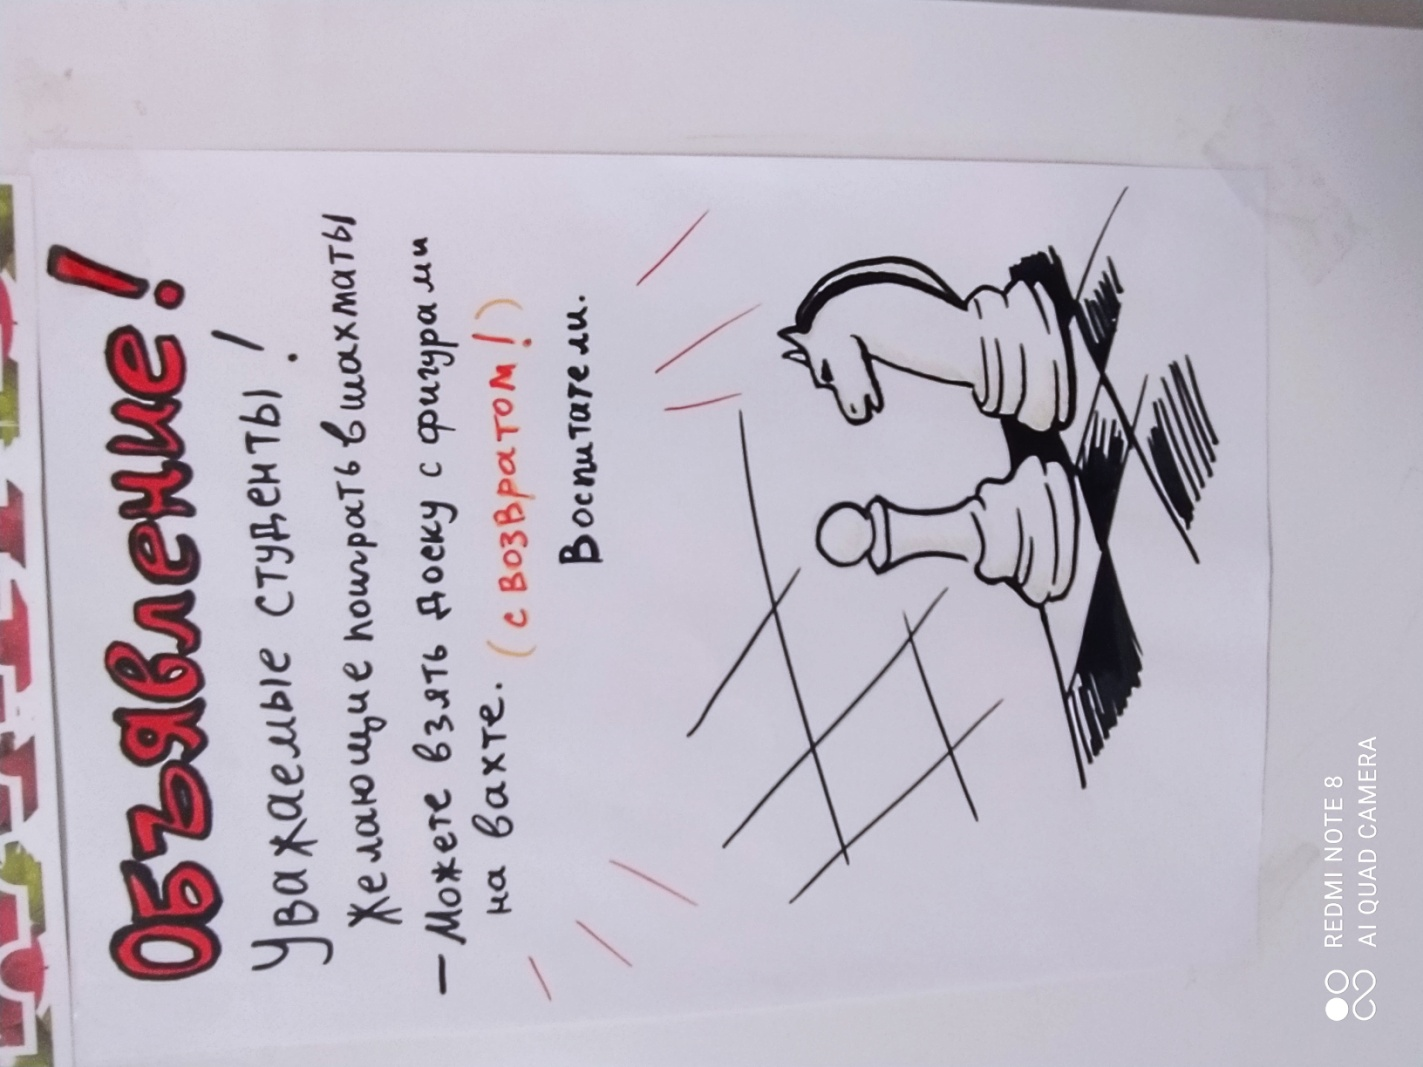 Объявление!
Уважаемые студенты!
Желающие поиграть в шахматы
— Можете взять доску с фигурами
на вахте. (с возвратом!)
Воспитатели.
REDMI NOTE 8
AI QUAD CAMERA